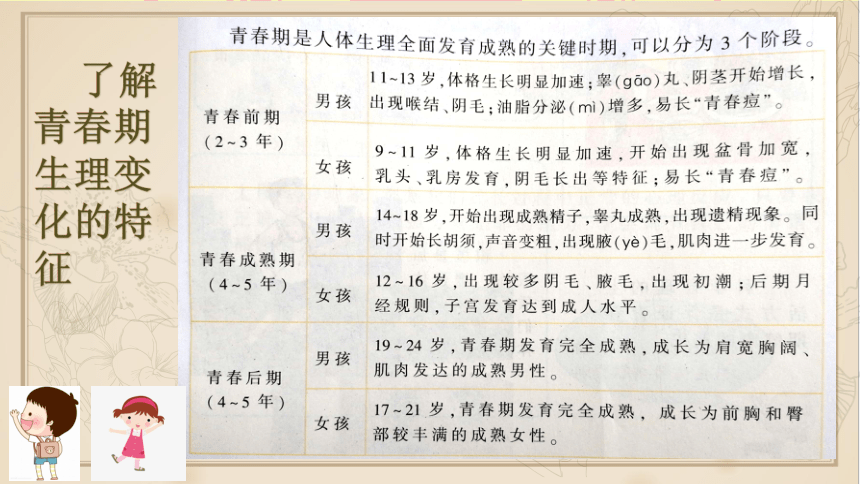 了解
青春期
生理变
化的特
征
青春期是人体生理全面发育成熟的关键时期,可以分为 3 个阶段。
青春前期
(2~3 年)
男孩
11~13 岁,体格生长明显加速;睾(gāo)丸、阴茎开始增长,
出现喉结、阴毛;油脂分泌(mì)增多,易长“青春痘”。
女孩
9~11 岁,体格生长明显加速,开始出现盆骨加宽,
乳头、乳房发育,阴毛长出等特征;易长“青春痘”。
青春成熟期
(4~5 年)
男孩
14~18 岁,开始出现成熟精子,睾丸成熟,出现遗精现象。同
时开始长胡须,声音变粗,出现腋(yè)毛,肌肉进一步发育。
女孩
12~16 岁,出现较多阴毛、腋毛,出现初潮;后期月
经规则,子宫发育达到成人水平。
青春后期
(4~5 年)
男孩
19~24 岁,青春期发育完全成熟,成长为肩宽胸阔、
肌肉发达的成熟男性。
女孩
17~21 岁,青春期发育完全成熟,成长为前胸和臀
部较丰满的成熟女性。